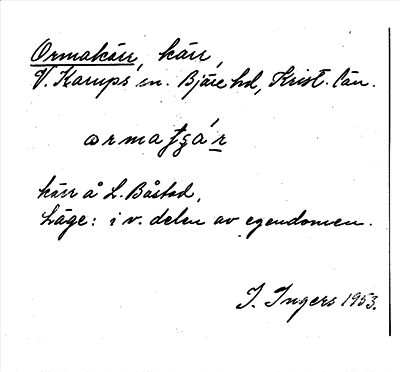 Ormakärr, kärr,
V. Karups sn. Bjäre hd, Krist. län.
kärr å L. Båstad.
Läge: i v. delen av egendomen.
I. Ingers 1953.